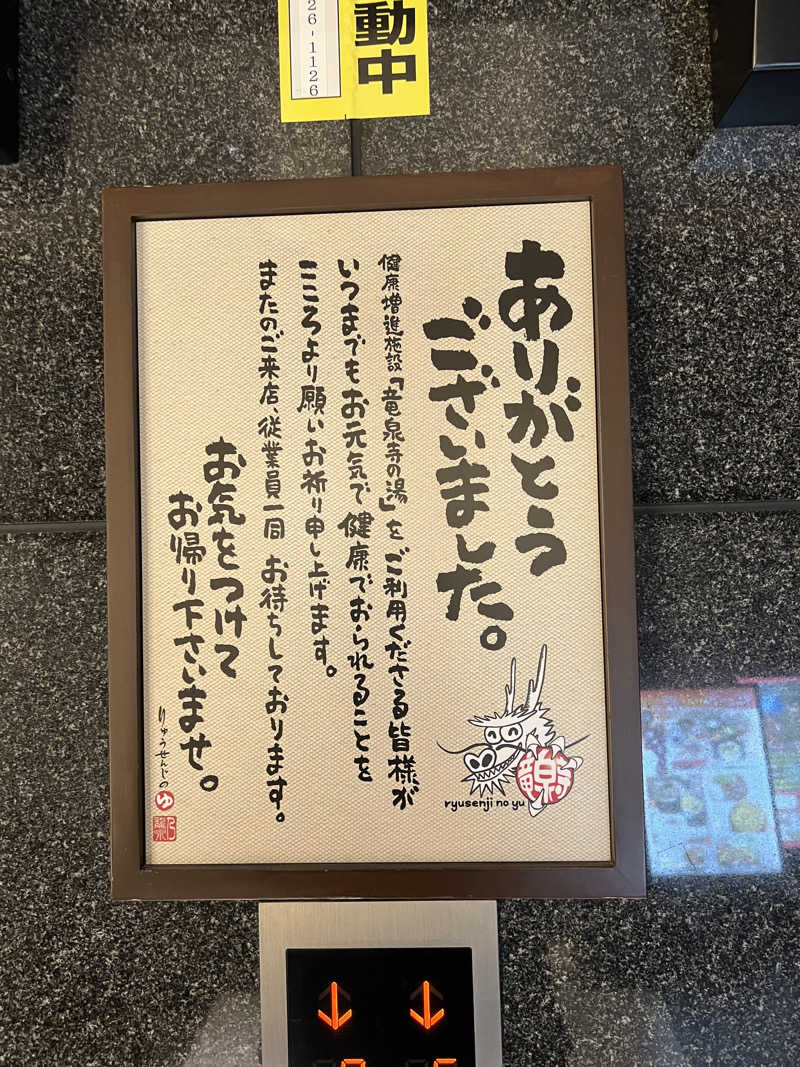 26-1126
動中
ありがとう
ございました。
健康増進施設「竜泉寺の湯」をご利用くださる皆様が
いつまでもお元気で健康でおられることを
こころより願いお祈り申し上げます。
またのご来店、従業員一同 お待ちしております。
お気をつけて
お帰り下さいませ。
りゅうせんじの
ゆ
ryusenji no yu